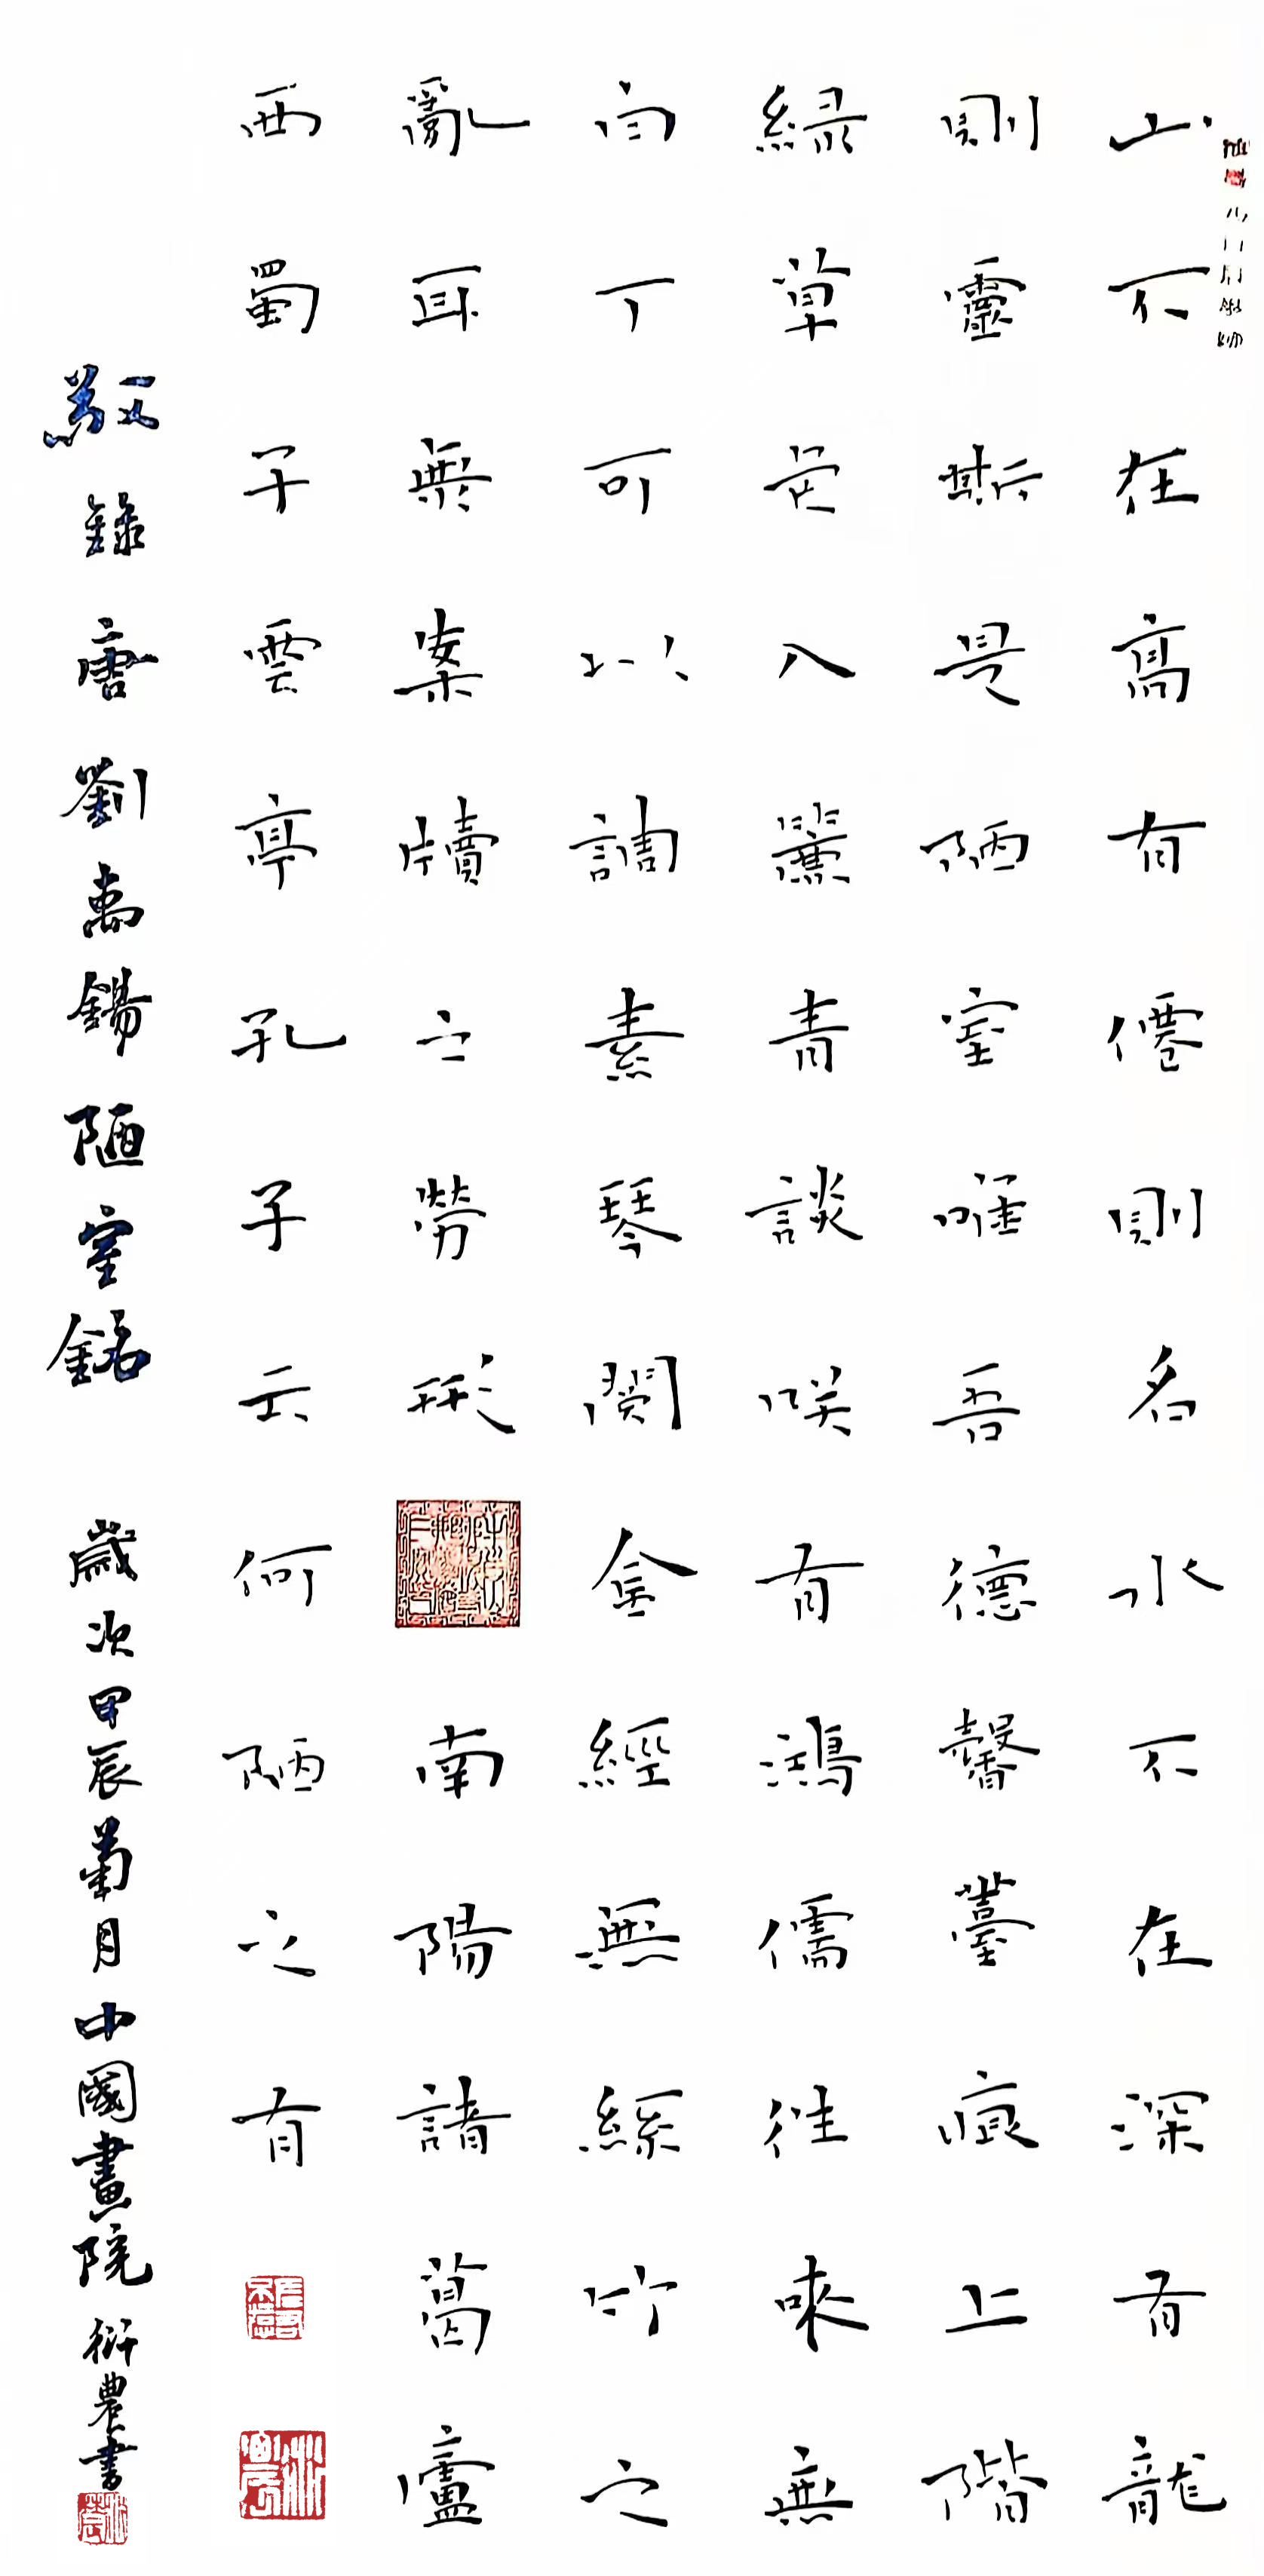 山不在高有僊則名水不在深有龍
則靈斯是陋室唯吾德馨薹痕上階
綠草色入簾青談咲有鴻儒往來無
白丁可以調素琴閱金經無絲竹之
亂耳無案牘之勞形南陽諸葛廬
西蜀子雲亭孔子云何陋之有
敬錄唐劉禹錫陋室銘 歲次甲辰菊月中國畫院衍農書